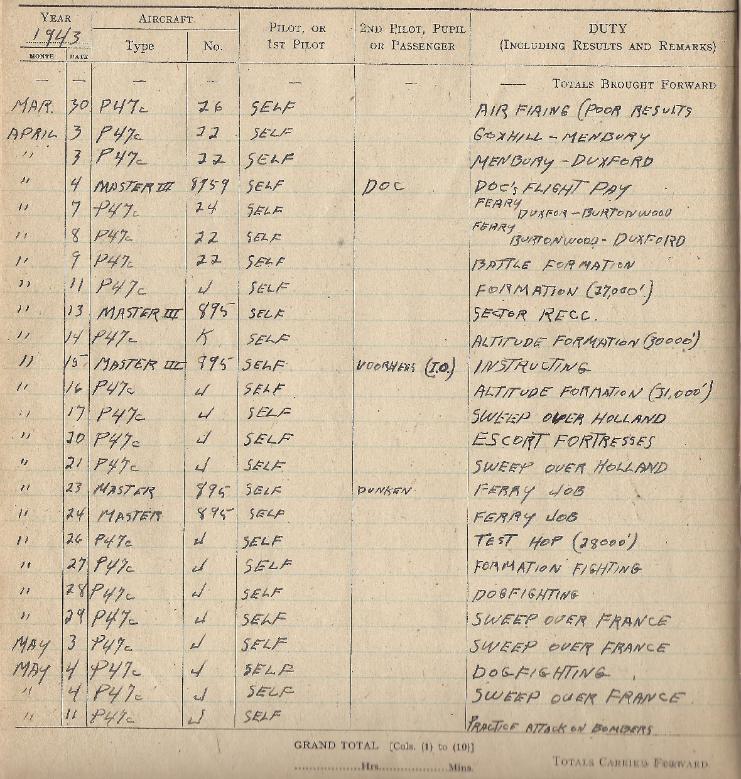 YEAR AIRCRAFT PILOT, OR 2ND PILOT, PUPIL DUTY
1943 Type No. 1ST PILOT OR PASSENGER (INCLUDING RESULTS AND REMARKS)
MONTH DATE
— — — — — — —— TOTALS BROUGHT FORWARD
MAR. 30 P47c 26 SELF AIR FIRING (POOR RESULTS
APRIL 3 P47c 22 SELF GOXHILL - MENBURY
" 3 P47c 22 SELF MENBURY - DUXFORD
" 4 MASTER III 8759 SELF DOC DOC'S FLIGHT PAY
" 7 P47c 24 SELF FERRY DUXFOR - BURTONWOOD
" 8 P47c 22 SELF FERRY BURTONWOOD - DUXFORD
" 9 P47c 22 SELF BATTLE FORMATION
" 11 P47c J SELF FORMATION (27,000')
" 13 MASTER III 895 SELF SECTOR RECC.
" 14 P47c K SELF ALTITUDE FORMATION (30000')
" 15 MASTER III 895 SELF VOORHEES (I.O.) INSTRUCTING
" 16 P47c J SELF ALTITUDE FORMATION (31,000')
" 17 P47c J SELF SWEEP OVER HOLLAND
" 20 P47c J SELF ESCORT FORTRESSES
" 21 P47c J SELF SWEEP OVER HOLLAND
" 23 MASTER 895 SELF DUNKEN FERRY JOB
" 24 MASTER 895 SELF FERRY JOB
" 26 P47c J SELF TEST HOP (28000')
" 27 P47c J SELF FORMATION FIGHTING
" 28 P47c J SELF DOGFIGHTING
" 29 P47c J SELF SWEEP OVER FRANCE
MAY 3 P47c J SELF SWEEP OVER FRANCE
MAY 4 P47c J SELF DOGFIGHTING
" 4 P47c J SELF SWEEP OVER FRANCE
" 11 P47c J SELF PRACTICE ATTACK ON BOMBERS
GRAND TOTAL [Cols. (1) to (10)]
..........Hrs..........Mins. TOTALS CARRIED FORWARD